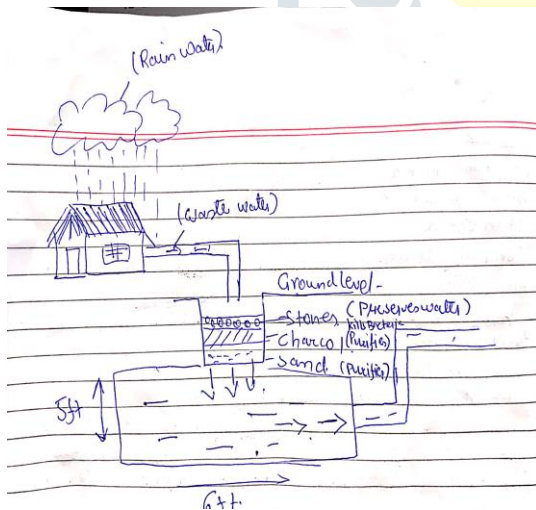 (Rain Water)
(Waste water)
Ground level-
-Stones (Preserves water)
kills Bacteria
-Charcol (Purifies)
-Sand (Purifies)
5ft
6ft.